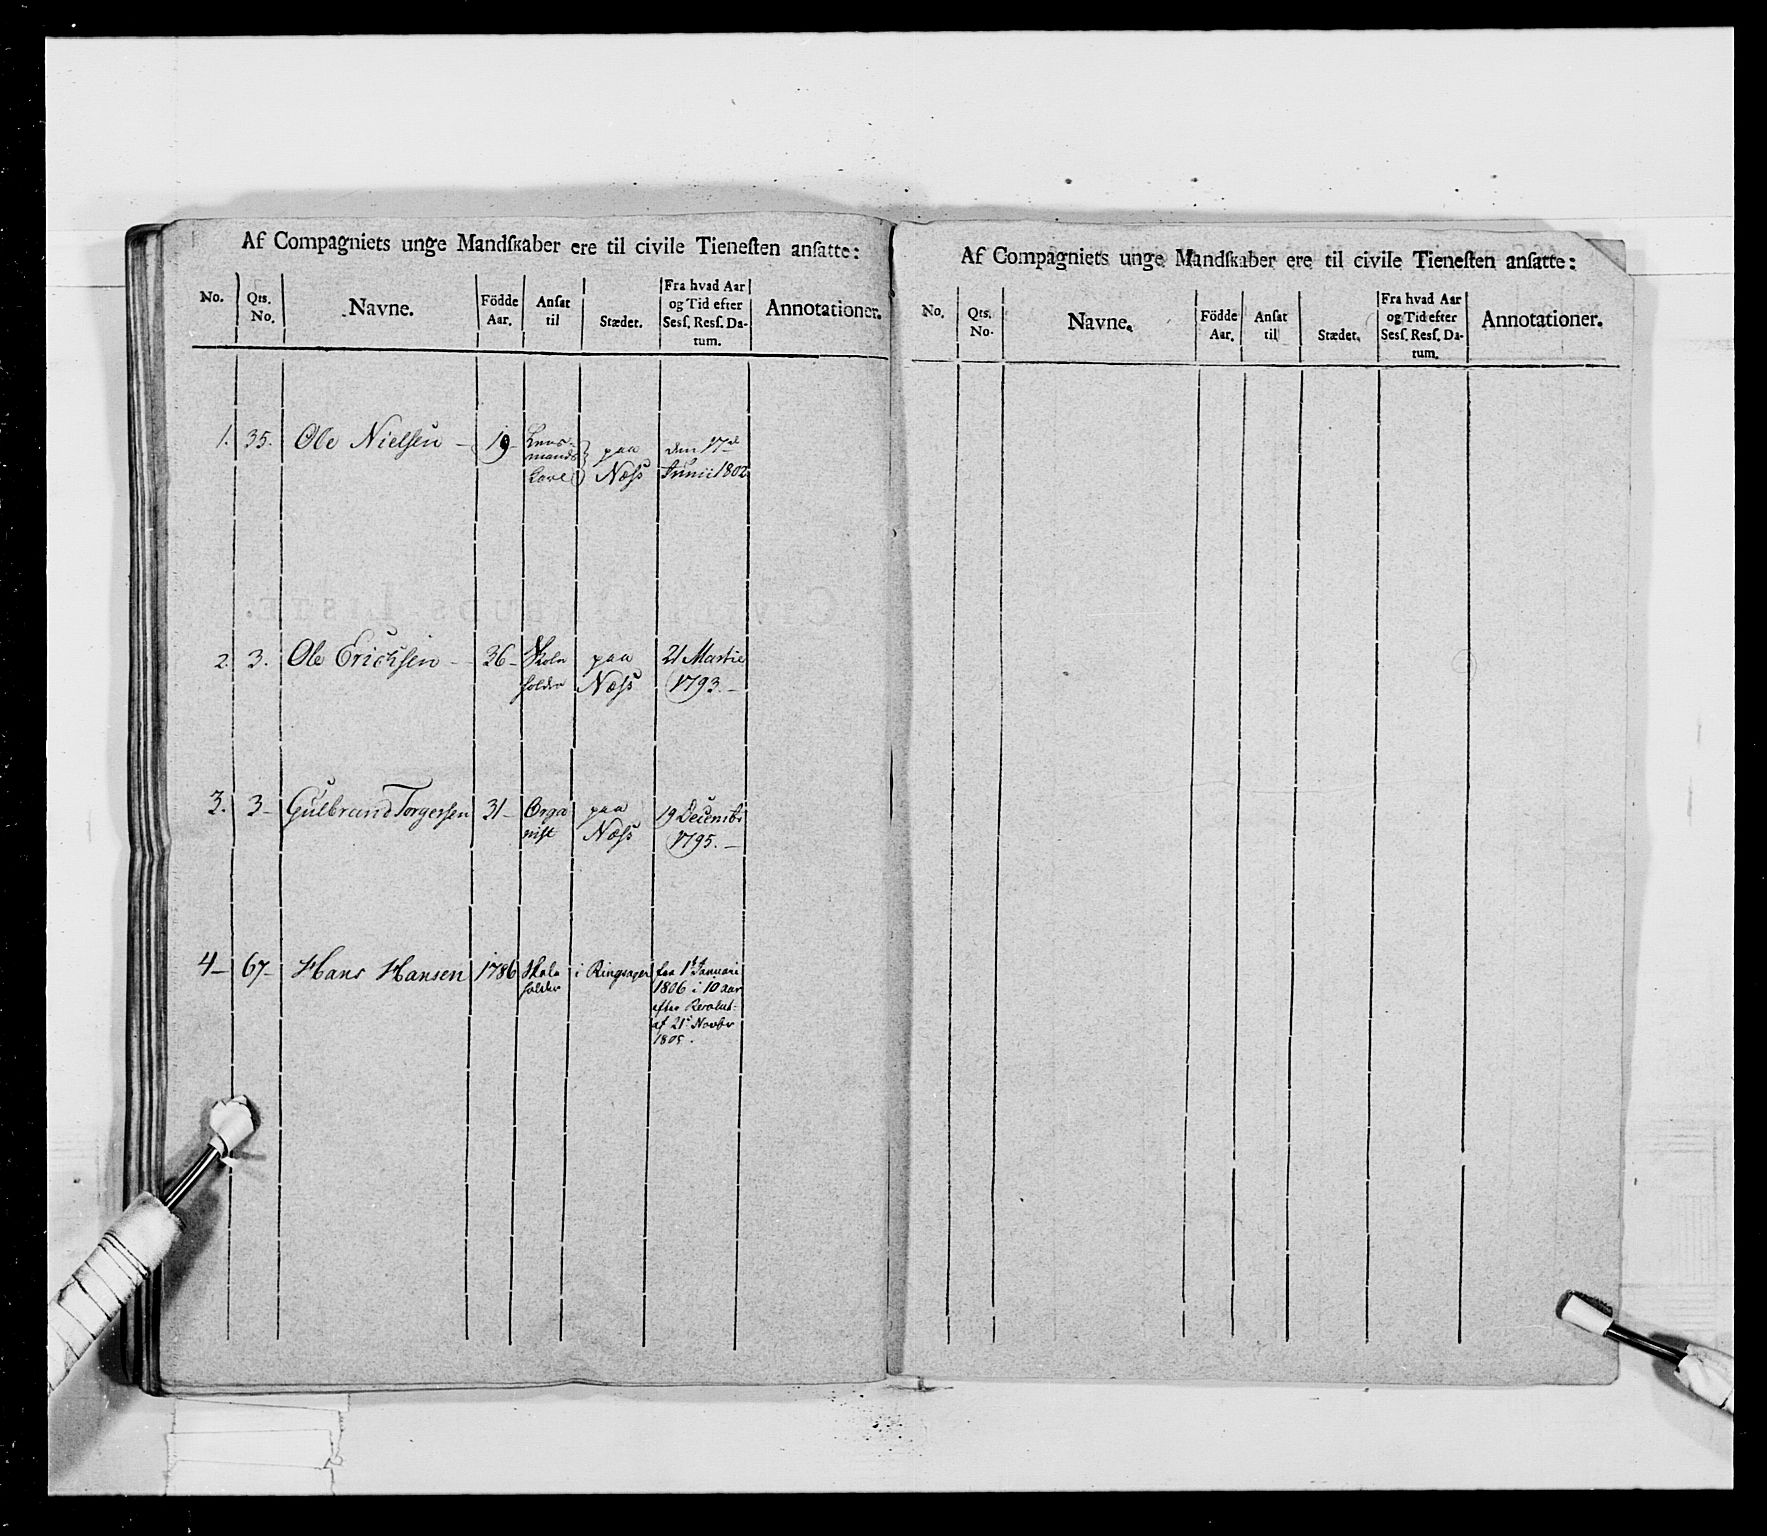 Af Compagniets unge Mandskaber ere til civile Tienesten ansatte:
No. Qts. No. Navne. Födde Aar. Ansat til Stædet. Fra hvad Aar og Tid efter Sess. Ress. Datum. Annotationer.
1. 35. Ole Nielsen – 19 – paa Næss den 17de Junii 1802
2. 3. Ole Erichsen – 36 – Skole holder paa Næss 21 Martii 1793. –
3. 3 – Gulbrand Torgersen 31 – Orga nist paa Næss 19 Decembr 1795. –
4 – 67 – Hans Hansen 1786 Skole holder i Ringsager fra 1t Januari
1806 i 10 aar
efter Resolut-
af 21 Novbr
1805.
Af Compagniets unge Mandskaber ere til civile Tienesten ansatte:
No. Qts. No. Navne. Födde Aar. Ansat til Stædet. Fra hvad Aar og Tid efter Sess. Ress. Datum. Annotationer.